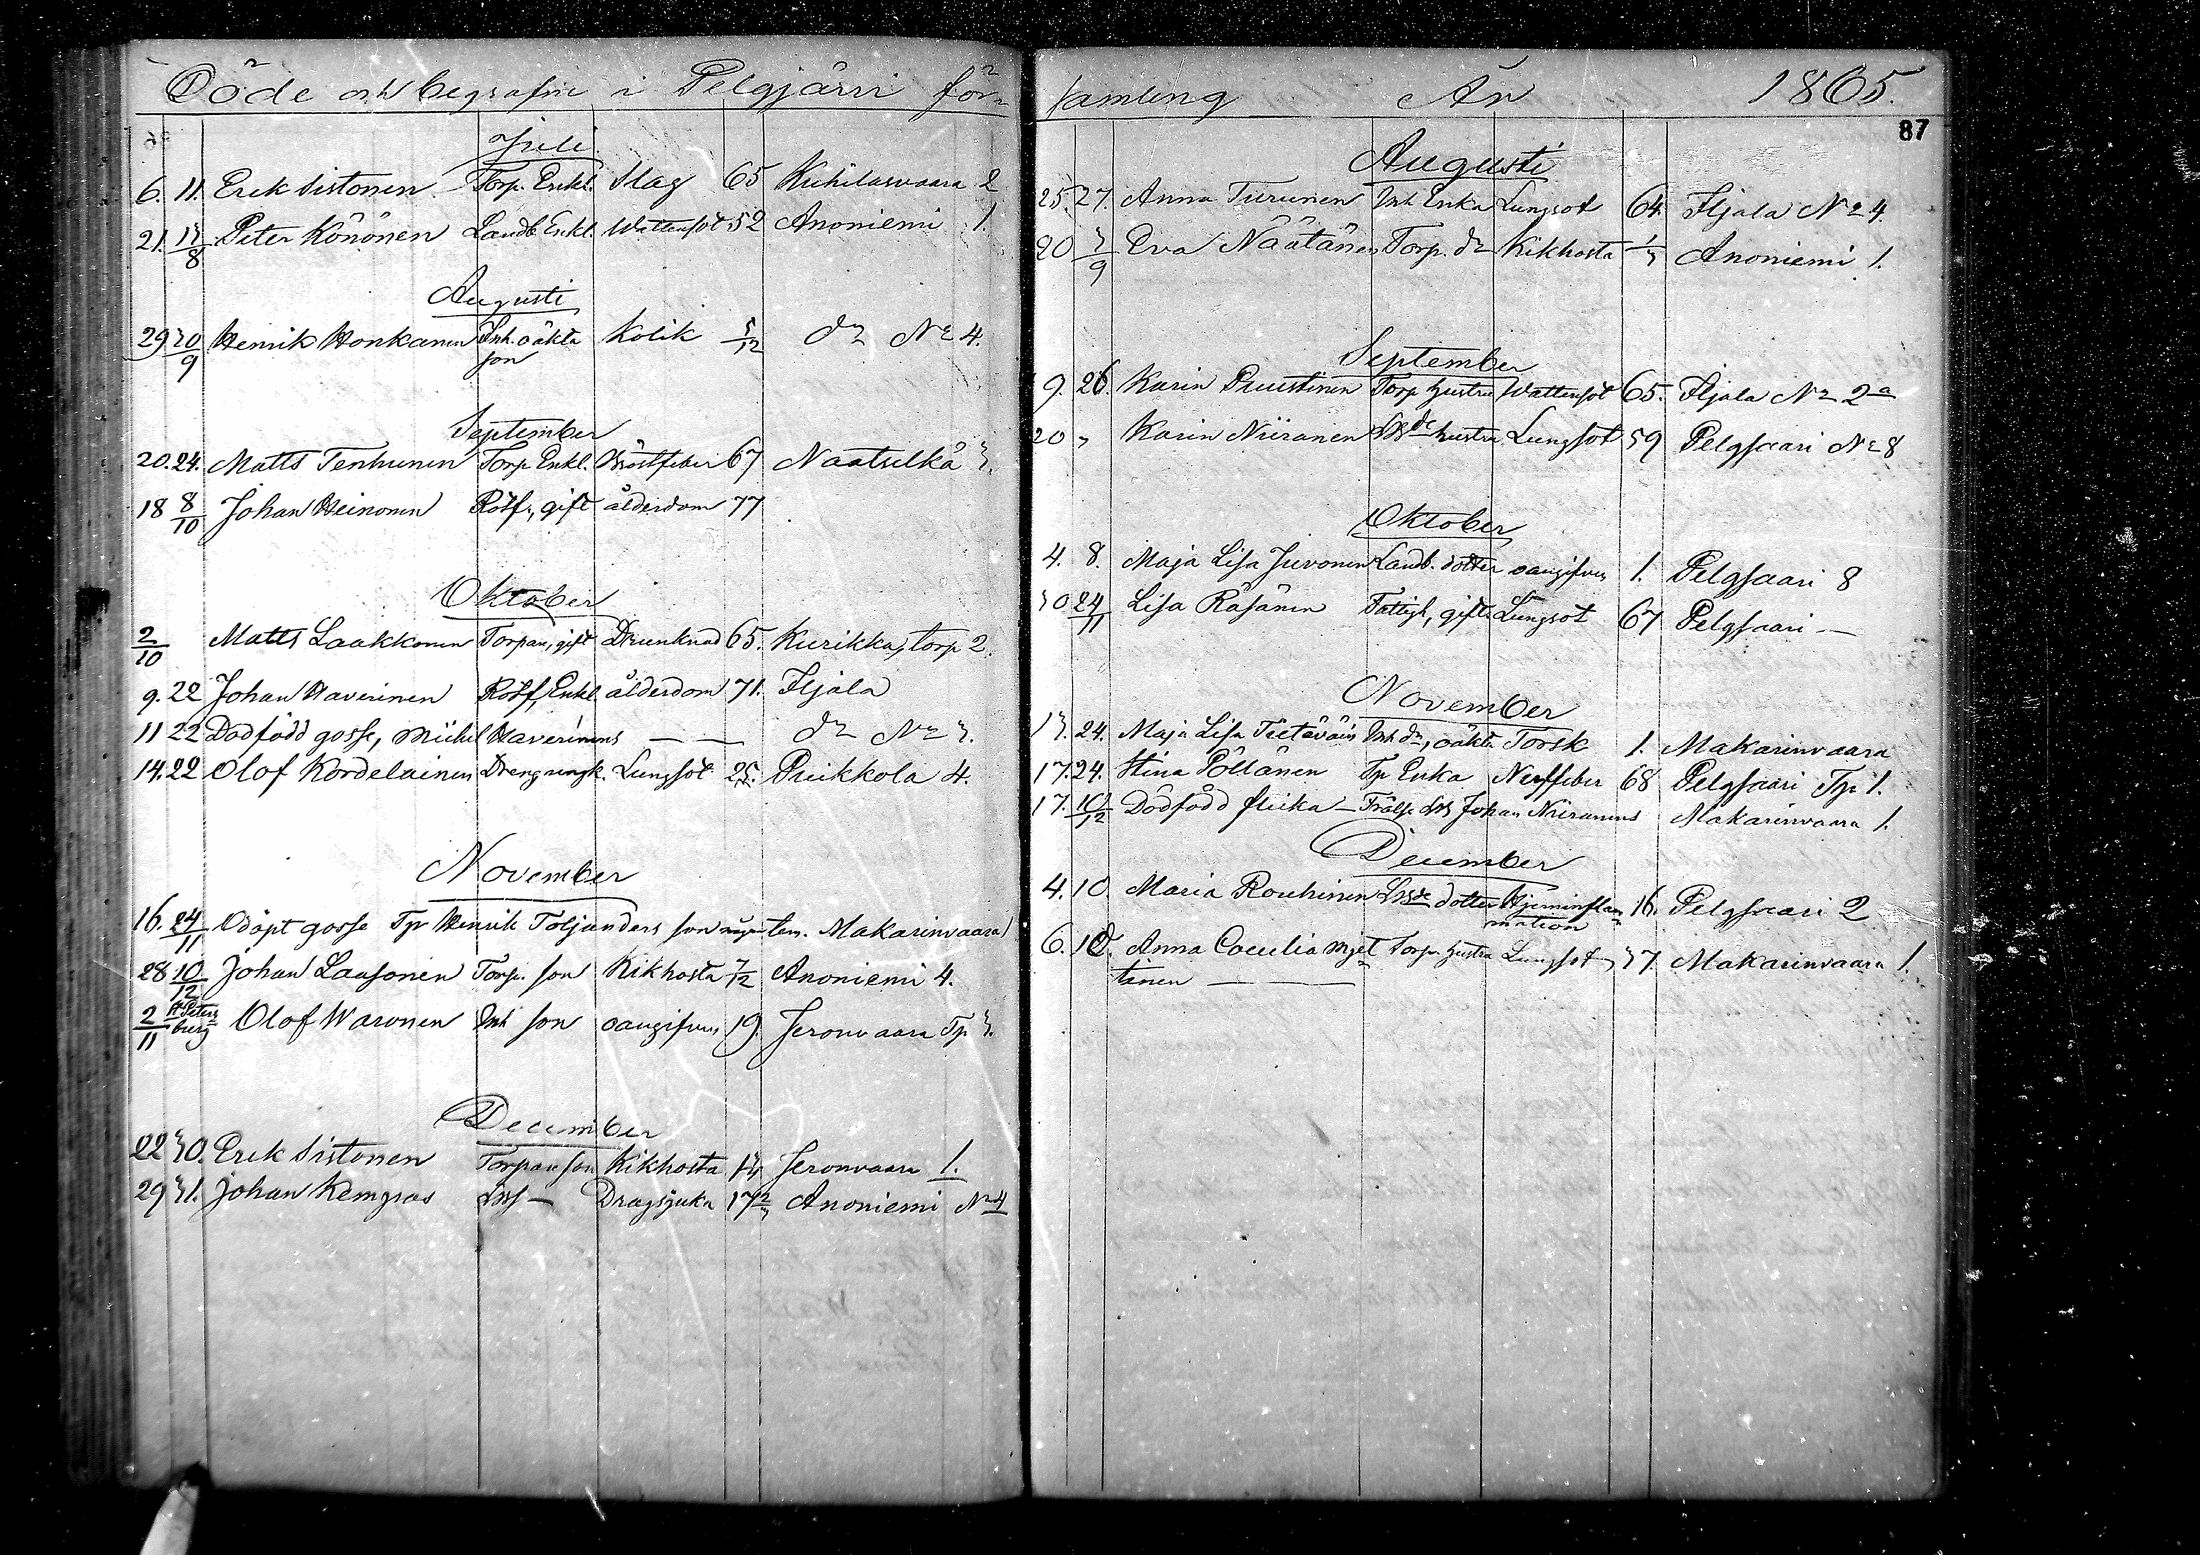 Döde och begrafne i Pelgjärvi för-
Juli
6. 11. Erik Sistonen Torp. Enkl. Slag 65 Kuhilasvaara 2
21. 13/8 Peter Könönen Landb. Enkl. Wattensot 52 Anoniemi 1.
Augusti
29 20/9 Henrik Honkanen Inh. oäkta Kolik 5/12 do No 4.
son
September
20. 24. Matts Tenhunen Torp. Enkl. Bröstfeber 67 Naatselkä 3.
18 8/10 Johan Heinonen Rotf., gift ålderdom 77
Oktober
2/10 Matts Laakkonen Torpau, gift Drunknad 65. Kurikka, torp 2.
9. 22 Johan Haverinen Rotf, Enkl. ålderdom 71. Iljala
11 22 Dödfödd gosse, Michel Haverinens — — do No 3.
14. 22 Olof Kordelainen Dreng ungk. Lungsot 25. Puikkola 4.
November
16. 24/11 Odöpt gosse Tpr Henrik Toljanders son Makarinvaara 1
28 10/12 Johan Laasonen Torp. son Kikhosta 7/12 Anoniemi 4.
2/11 St Peters-burg Olof Waronen Inh son oangifven 19. Jeronvaara Tp 3.
December
22 30. Erik Sistonen Torpau son Kikhosta Jeronvaara 1.
29 31. Johan Kemgras — Dragsjuka Anoniemi No 4
samling År 1865.
87
Augusti
25. 27. Anna Turunen Inh Enka Lungsot 64. Iljala No 4.
20 3/9 Eva Näätänen Torp. dr Kikhosta 1/3 Anoniemi 1.
September
9. 26. Karin Puustinen Torp hustru Wattensot 65. Iljala No 2a
20 " Karin Niiranen hustru Lungsot 59 Pelgsaari No 8
Oktober
4. 8. Maja Lisa Juvonen Landb. dotter oangifven 1. Pelgsaari 8
30 24/11 Lisa Räsänen Fattigh, gift Lungsot 67 Pelgsaari —
November
13. 24. Maja Lisa Tietäväin Inh dr, oäkta Torsk 1. Makarinvaara
17. 24. Stina Pöllänen Tp Enka Nerffeber 68 Pelgsaari Tp 1.
17. 10/12 Dödfödd flicka — Frälse Johan Niiranens Makarinvaara 1.
December
4. 10 Maria Rouhinen dotter Hjerninflam- 16. Pelgsaari 2
mation
6. 10. Anna Coecilia Myet- Torp. hustru Lungsot 37. Makarinvaara 1.
tänen —